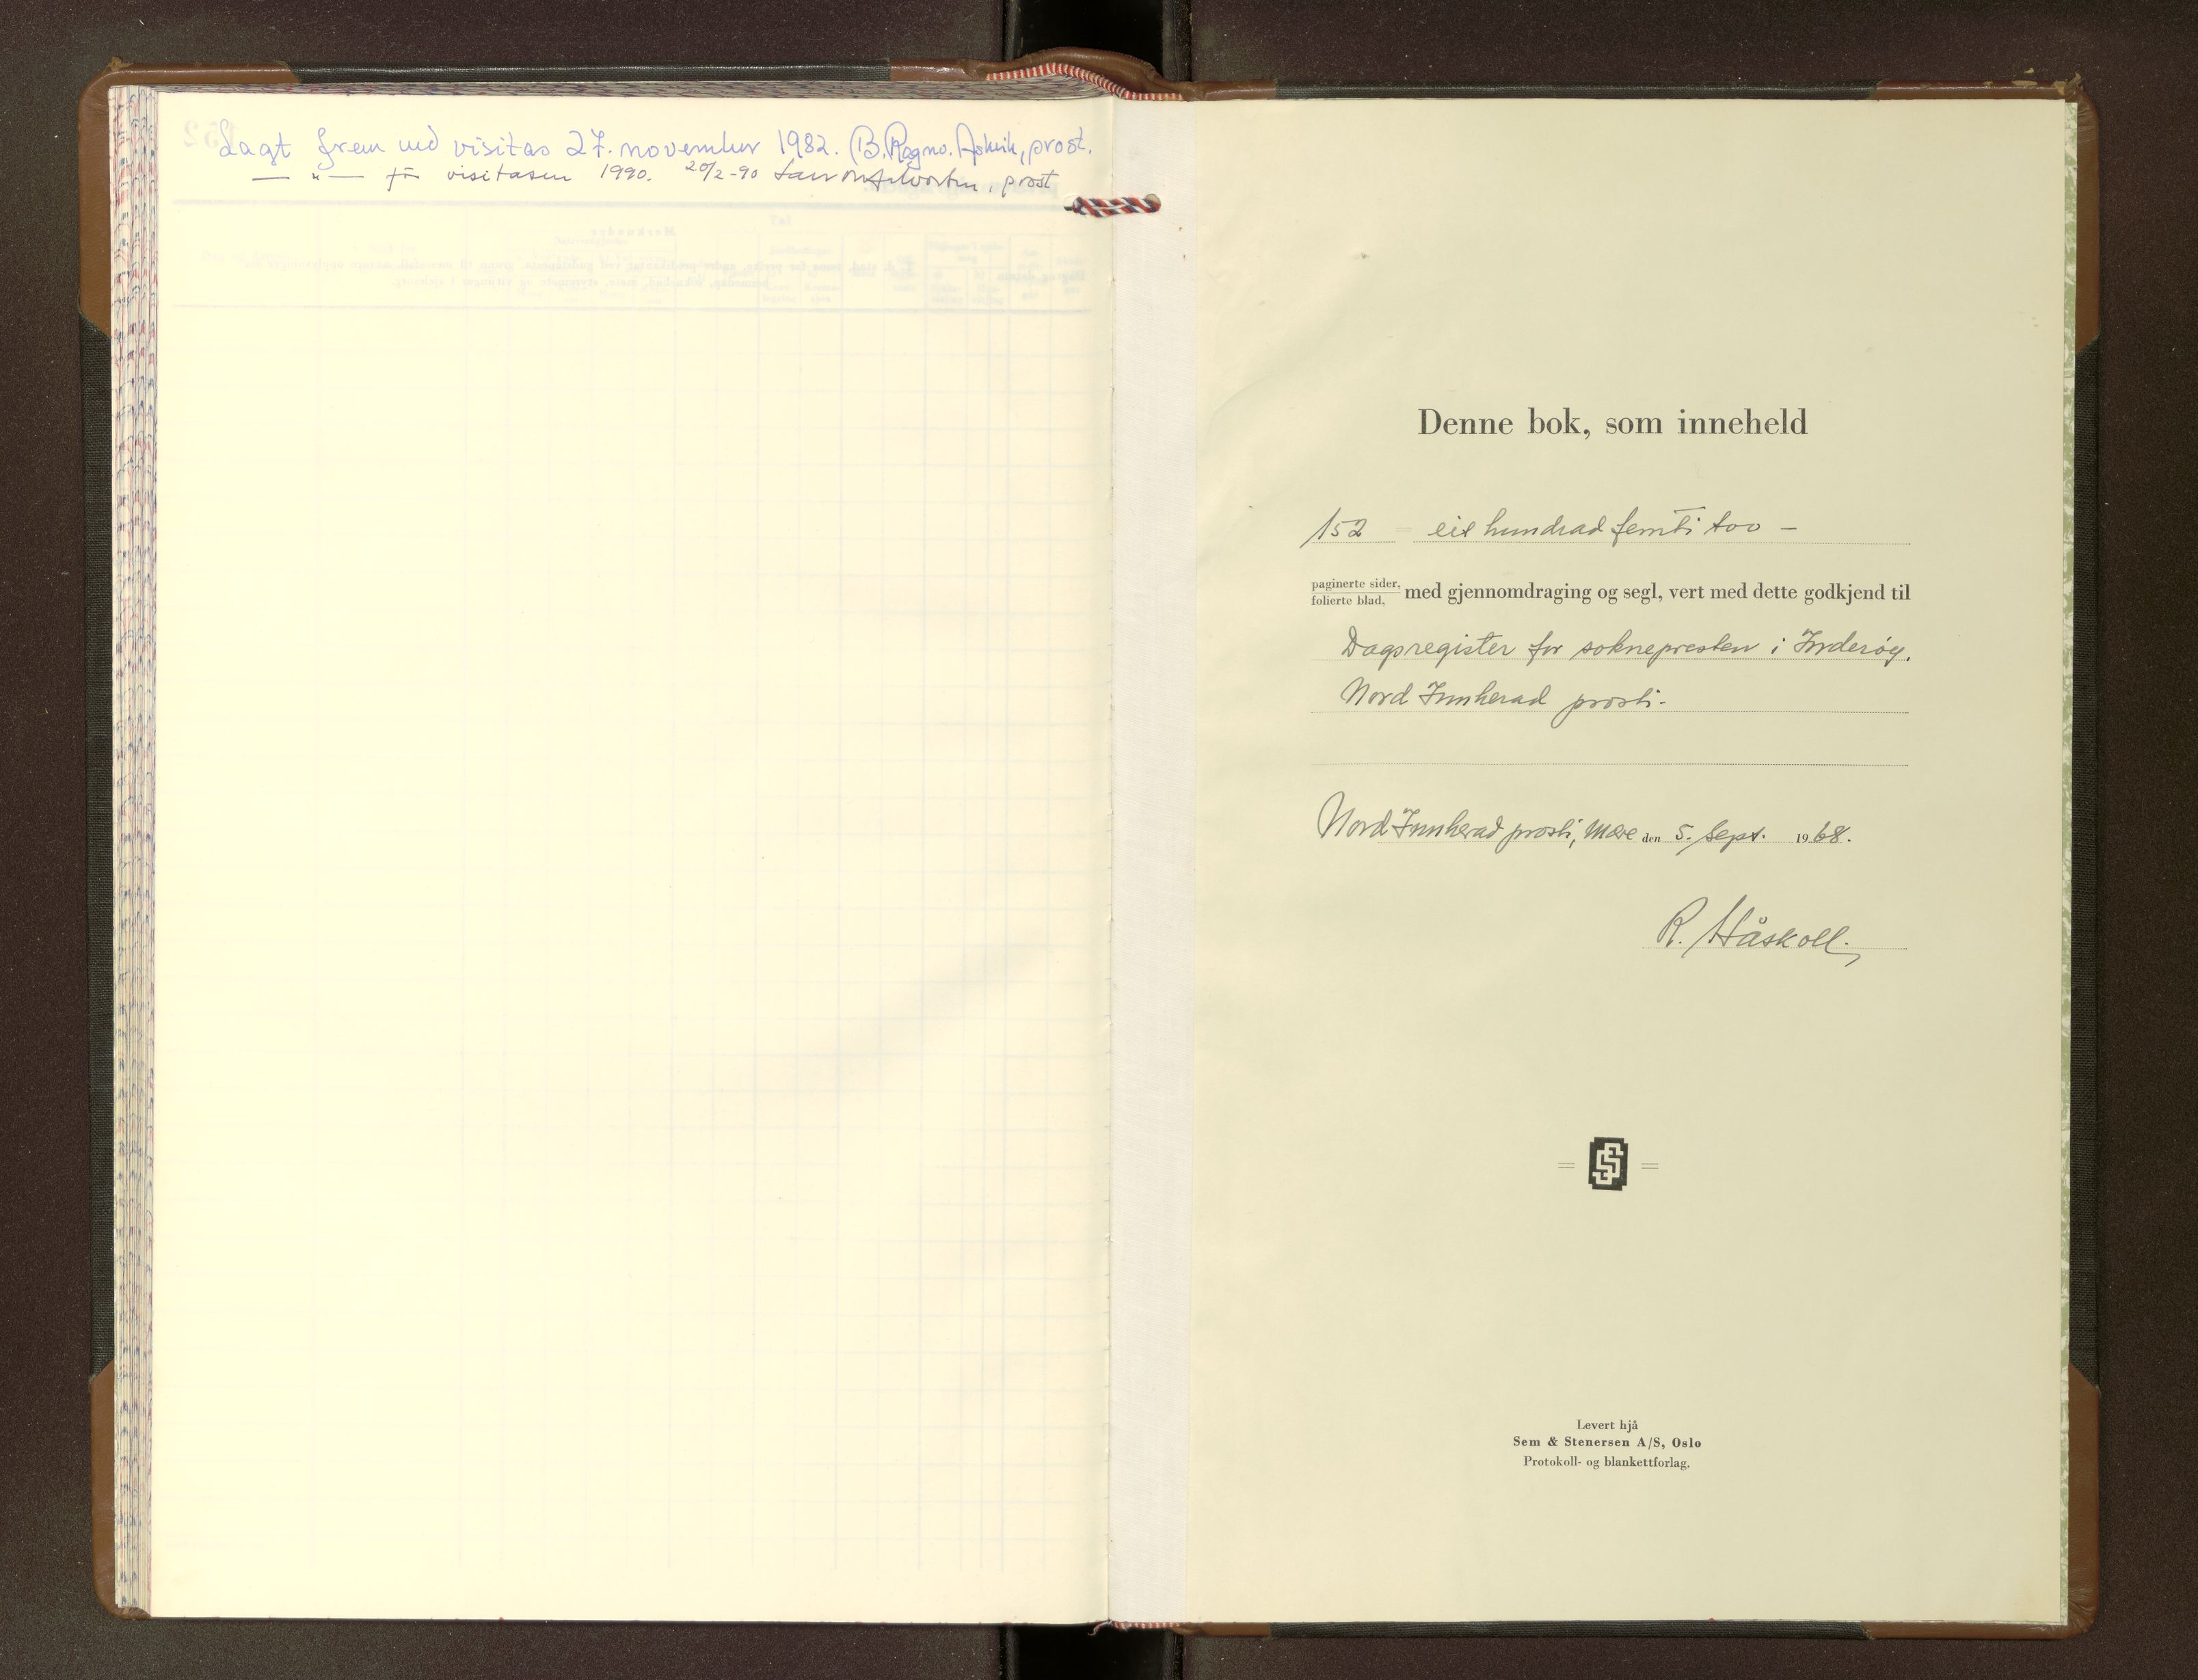 Lagt frem ved visitas 27. november 1982. B. Ragnv. Askvik, prost.
— " — før visitasen 1990. 20/2-90, prost
Denne bok, som inneheld
152 = eit hundrad femti too —
paginerte sider,
folierte blad,
med gjennomdraging og segl, vert med dette godkjend til
Dagsregister for soknepresten i Inderøy.
Nord Innherad prosti.
Nord Innherad prosti, Mære den 5. Sept. 1968.
R. Håskoll.
Levert hjå
Sem & Stenersen A/S, Oslo
Protokoll- og blankettforlag.